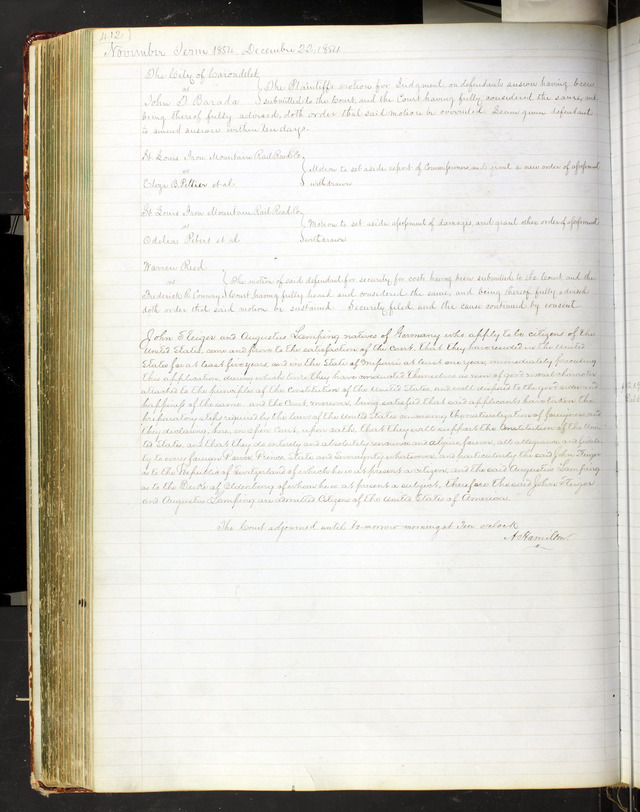 412)
November Term 1854 December 22, 1854
The City of Carondelet
vs
John D Barada
The Plaintiffs motion for Judgment on defendants answer having been
submitted to the Court, and the Court having fully considered the same, and
being thereof fully advised, doth order that said motion be overruled Leave given defendant
to amend answer within ten days.
St Louis Iron Mountain Rail Road Co
vs
B. Peltier et al
Motion to set aside report of Commissioners and grant a new order of assessment
withdrawn
St Louis Iron Mountain Rail Road Co
vs
et al
Motion to set aside assessment of damages, and grant other order of assessment
withdrawn
Warren Reed
vs
Frederick R. Conway
The motion of said defendant for security for costs having been submitted to the Court and the
Court having fully heard and considered the same, and being thereof fully advised
doth order that said motion be sustained. Security filed, and the cause continued by consent
John and Augustus Lamping natives of Germany who apply to be citizens of the
United States, come and prove to the satisfaction of the Court, that they have resided in the United
States for at least five years and in the State of Missouri at least one year, immediately preceding
this application, during which time they have conducted themselves as men of good moral character
attached to the principles of the Constitution of the United States and well disposed to the good order and
happiness of the same. And the Court moreover, being satisfied that said applicants have taken the
preparatory steps required by the laws of the United States concerning the naturalization of foreigners, and
they declaring, here, in open Court, upon oath, that they will support the Constitution of the Uni-
ted States, and that they do entirely and absolutely renounce and abjure forever, all allegiance and fideli-
ty to every foreign Power, Prince, State and Sovereignty whatsoever, and particularly the said John
to the Republic of Switzerland of which he is at present a citizen, and the said Augustus Lamping
to the Duke of Oldenburg of whom he is at present a subject, therefore the said John
and Augustus Lamping are admitted Citizens of the United States of America.
The Court adjourned until tomorrow morning at Ten oclock
A. Hamilton